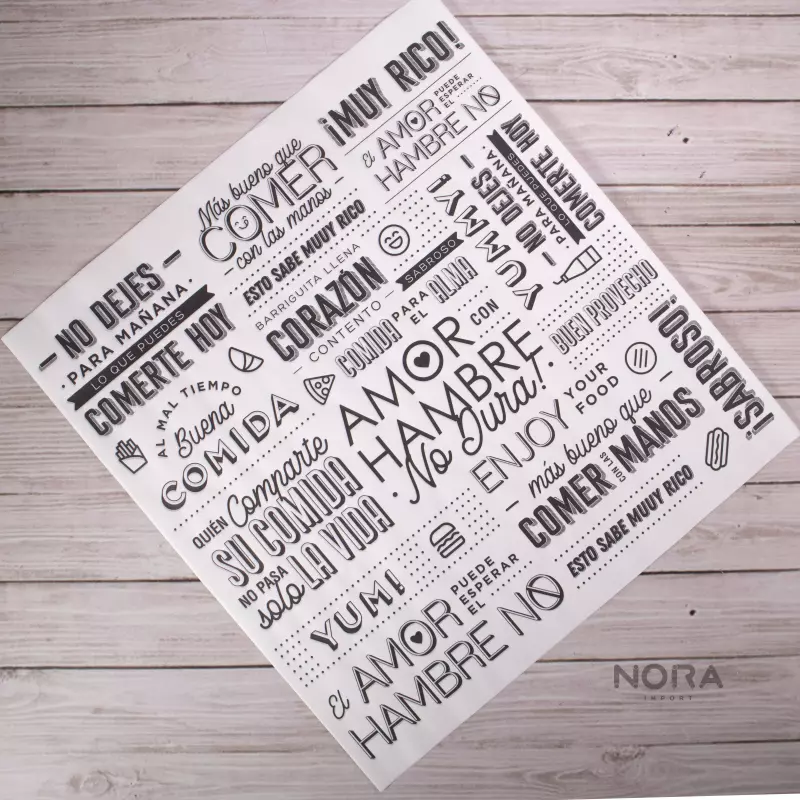 ¡MUY RICO!
El AMOR
PUEDE
ESPERAR
EL
HAMBRE NO
Más bueno que
COMER
- con las manos -
ESTO SABE MUUY RICO
- NO DEJES -
PARA MAÑANA.
LO QUE PUEDES
COMERTE HOY
BARRIGUITA LLENA
CORAZÓN
- CONTENTO -
SABROSO
YUMMY!
- NO DEJES -
PARA MAÑANA.
LO QUE PUEDES
COMERTE HOY
COMIDA
PARA
EL
ALMA
BUEN PROVECHO
¡SABROSO!
AL MAL TIEMPO
Buena
COMIDA
AMOR
CON
HAMBRE
· No Dura!·
ENJOY
YOUR
FOOD
QUIÉN Comparte
SU COMIDA
NO PASA
solo LA VIDA
- más bueno que -
COMER
CON LAS
MANOS
ESTO SABE MUUY RICO
YUM!
El AMOR
PUEDE
ESPERAR
EL
HAMBRE NO
NORA
IMPORT